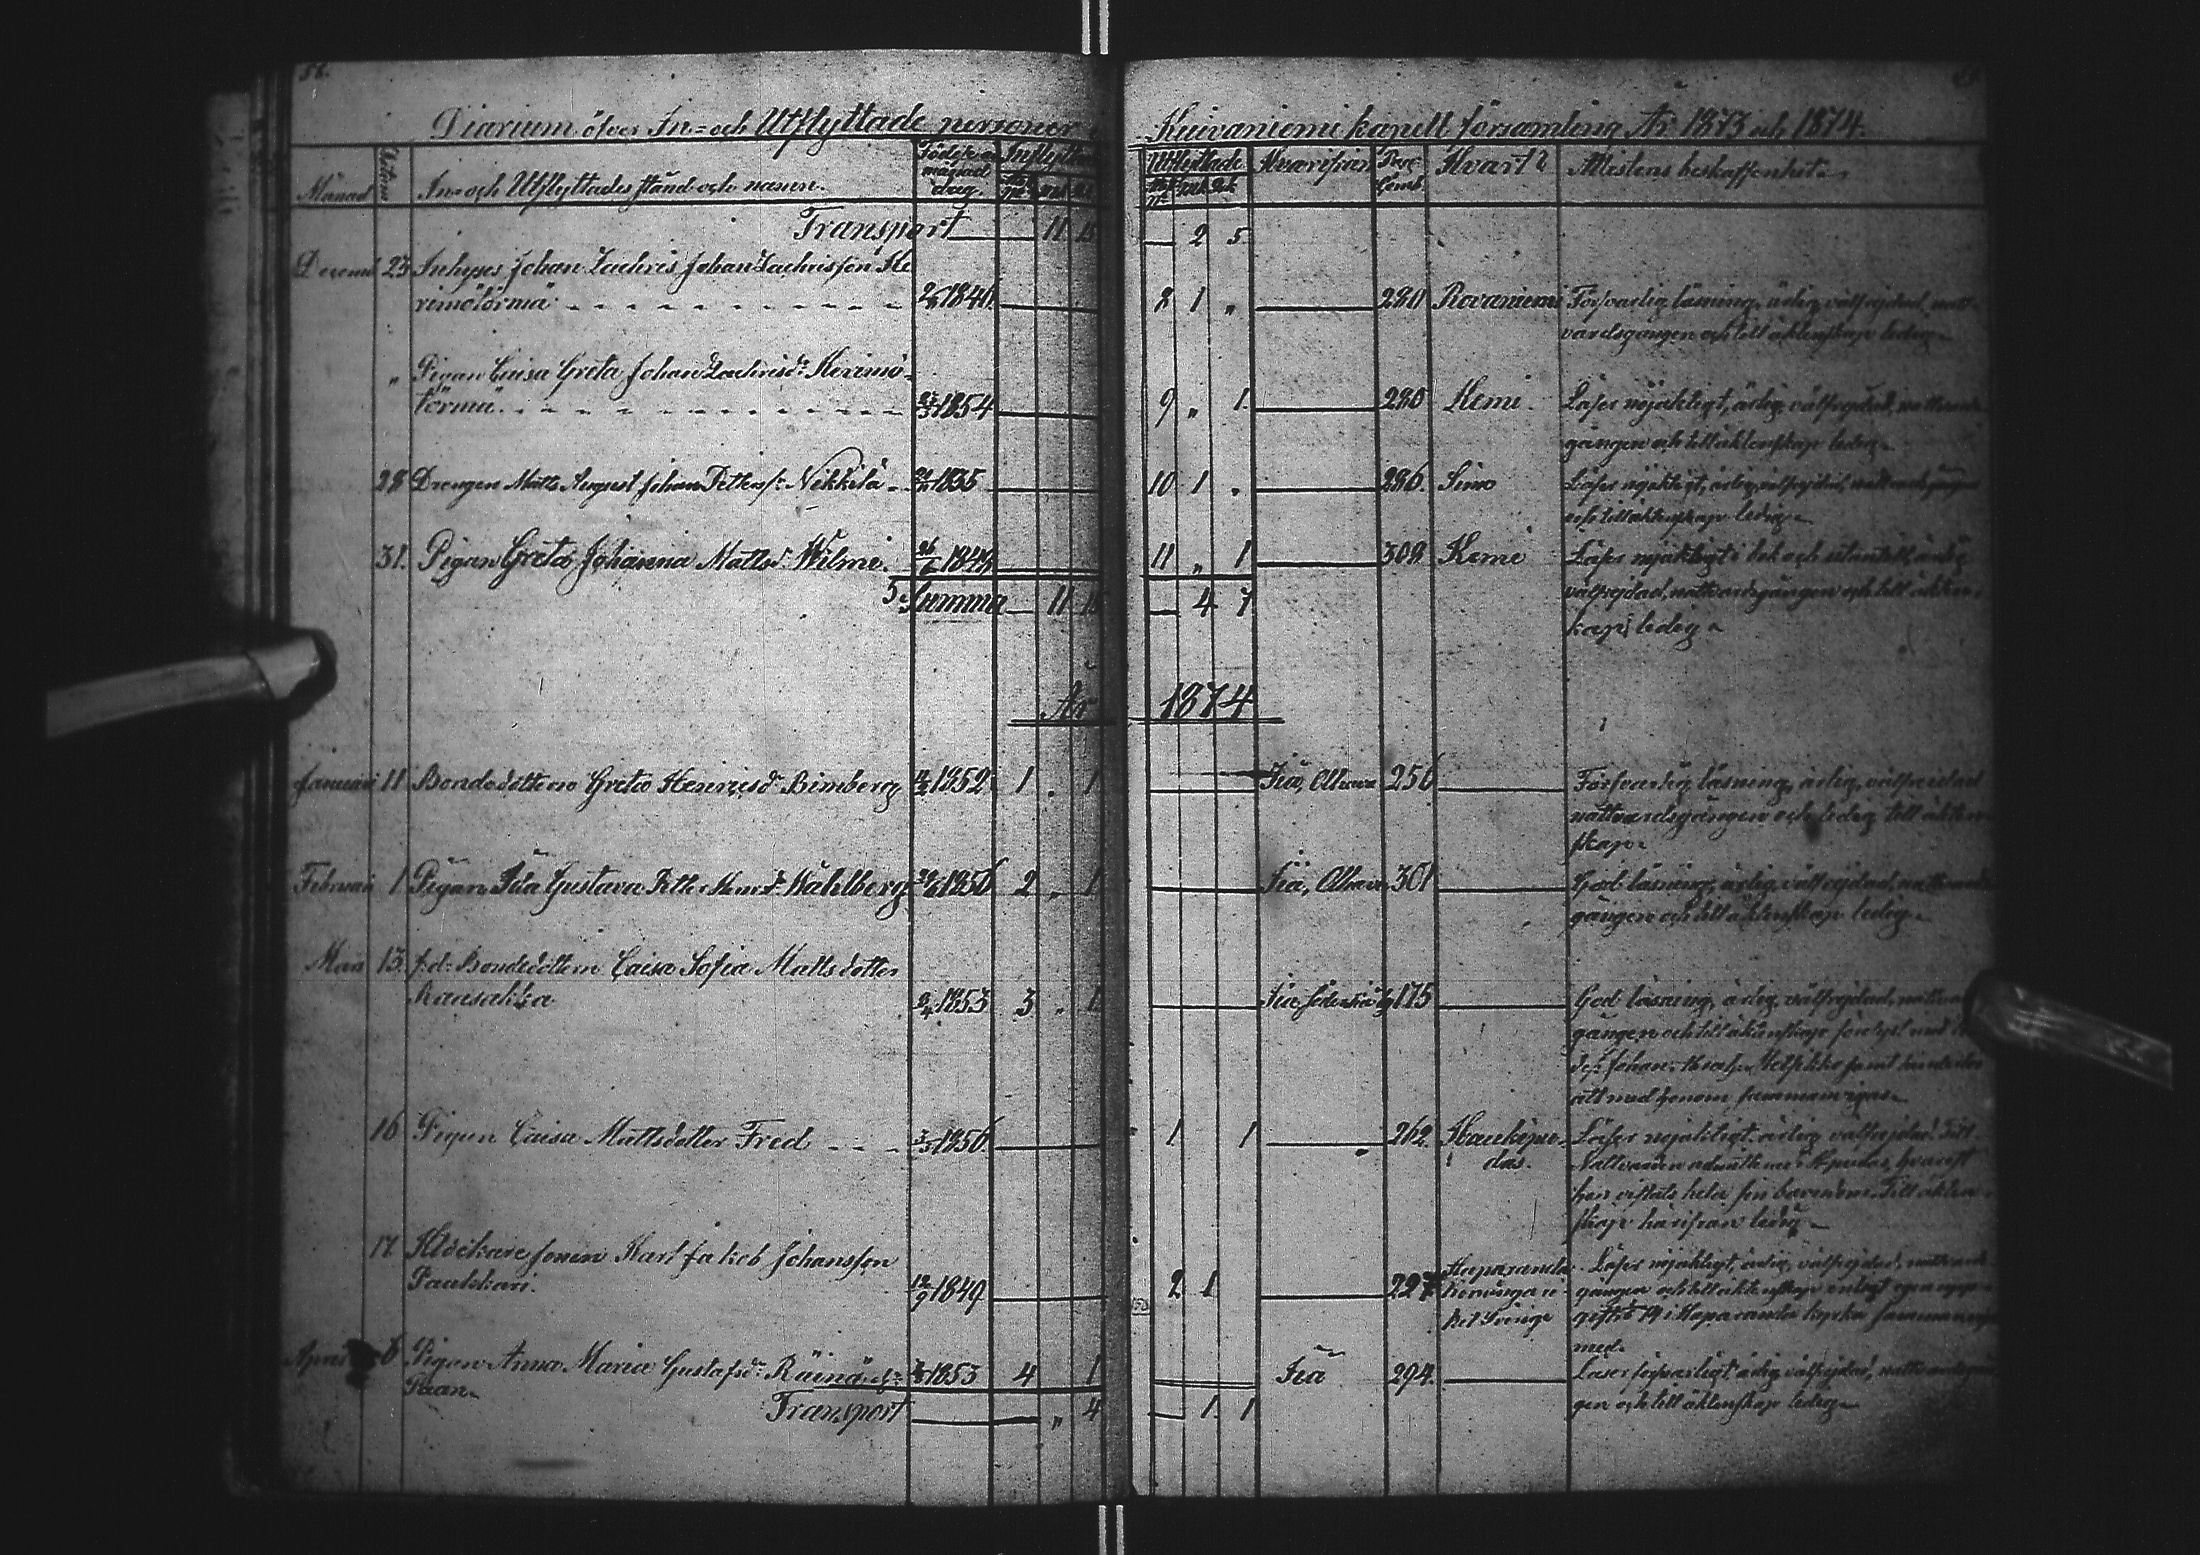 56.
Diarium öfver In- och Utflyttade personer i Kuivaniemi kapell församling År 1873 och 1874.
Månad Datum In- och Utflyttades stånd och namn. Födelse månad dag. Inflyttade Utflyttade Hvarifrån Pag. Hvart? Attestens beskaffenhet.
Transport 11 15 2 5
Decemb 23 Inhyses Johan Zachris Johan Zachrisson Ke
rimötörmä 1846 8 1 „ 280 Rovaniemi Försvarlig läsning, ärlig, välfrejdad, natt-
vardsgången och till äktenskap ledig.
„ Pigan Caisa Greta Johan Zachrisdr Kerimö-
törmä 1854 9 „ 1 280 Kemi. Läser nöjaktigt, ärlig, välfrejdad, nattvards
gången och till äktenskap ledig.
28 Drengen Matts August Johan Petterss. Nikkilä 1835 10 1 „ 286. Simo Läser nöjaktigt, ärlig, välfrejdad, nattvardsgången
och till äktenskap ledig.
31. Pigan Greta Johanna Mattsdr Wilmi. 1849 11 „ 1 308 Kemi Läser nöjaktigt i bok och utantill, ärlig
Summa 11 15 4 7 välfrejdad, nattvardsgången och till äkten-
skap ledig.
År 1874
Januari 11 Bondedottern Greta Henricsdr Bimberg 1852 1 „ 1 Iiå, Olhava 256 Försvarlig läsning, ärlig, välfrejdad
nattvardsgången och ledig till äkten
skap.
Februari 1 Pigan Gustava Petter Wahlberg 1856 2 „ 1 Iiå, Olhava 301 God läsning, ärlig, välfrejdad, nattvards
gången och till äktenskap ledig.
Mars 13. f.d. Bondedottern Caisa Sofia Matts dotter
Kausakka 1853 3 „ 1 Iiå 175 God läsning, ärlig, välfrejdad, nattvards
gången och till äktenskap med
Johan samt
med honom sammanvigas.
16 Pigan Caisa Mattsdotter Fred 1856. 1 1 262. Haukipu-
das. Läser nöjaktigt, ärlig välfrejdad. Till
Nattvarden hvarest
hon vistats hela sin barndom. Till äkten
skap härifrån ledig.
17 Klockaresonen Karl Jakob Johansson
Paulskari. 12/9 1849 2 1 227 Haparanda
Konungari-
ket Sverige Läser nöjaktigt, ärlig, välfrejdad, nattvards
gången och till äktenskap enligt egen upp-
gift i Haparanda kyrka
med.
April 6 Pigan Anna Maria Gustafsdr Räinä
Paan. 1853 4 1 Iiå 294. Läser försvarligt ärlig välfrejdad, nattvardsgån
gen och till äktenskap ledig.
Transport „ 4 1 1